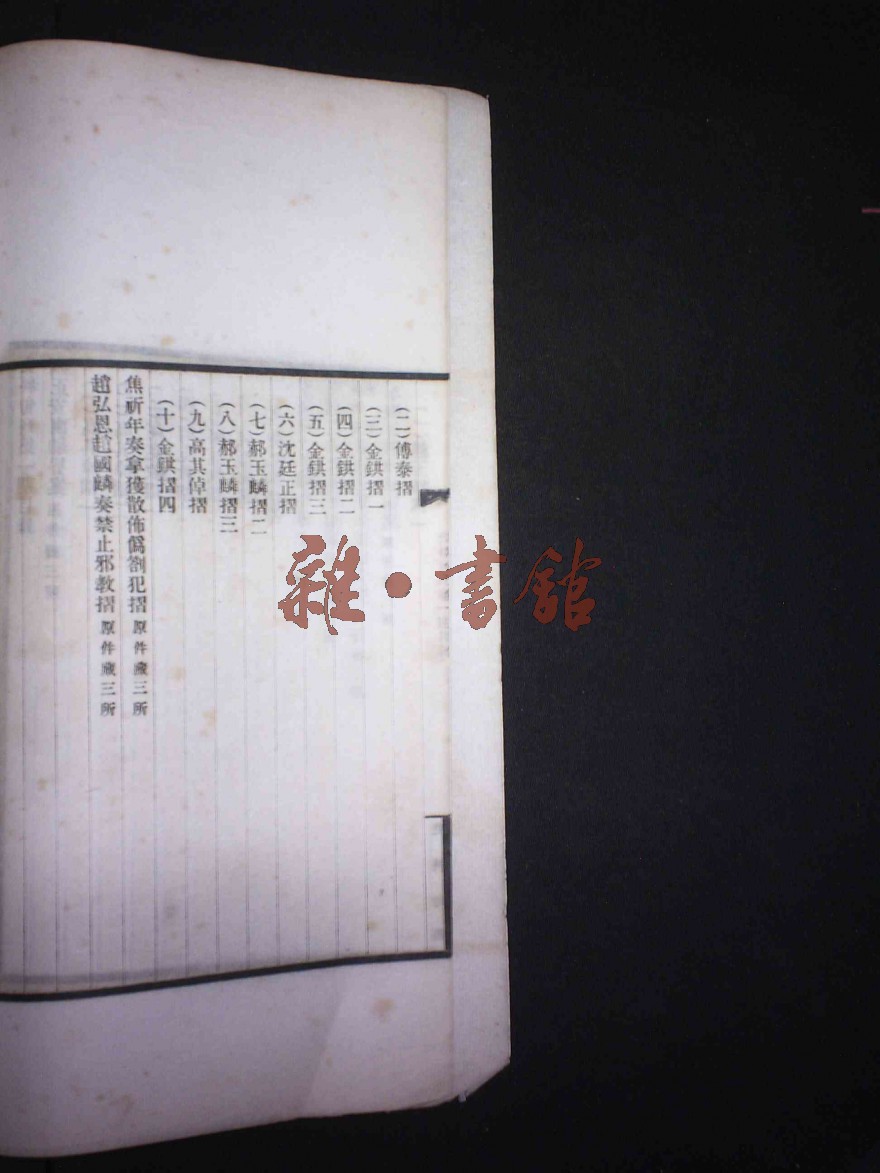 (二)傅泰摺
(三)金鉷摺一
(四)金鉷摺二
(五)金鉷摺三
(六)沈廷正摺
(七)郝玉麟摺二
(八)郝玉麟摺三
(九)高其倬摺
(十)金鉷摺四
焦祈年奏拿獲散佈僞劄犯摺 原件藏三所
趙弘恩趙國麟奏禁止邪教摺 原件藏三所
雜·書館